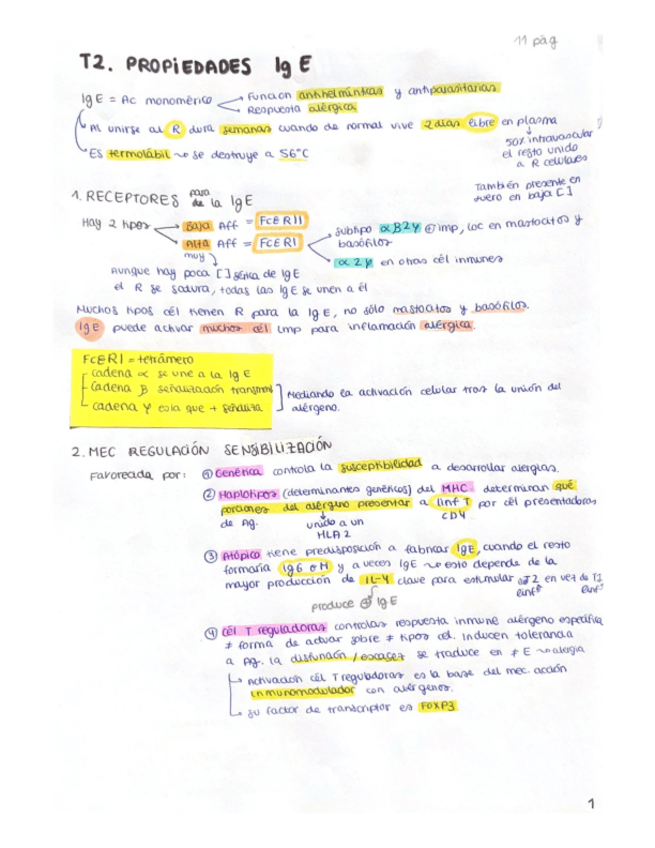 11 pág
T2. PROPIEDADES IgE
IgE = Ac monomérico → Función antihelmínticas y antiparasitarias
→ Respuesta alérgica
Al unirse al R dura semanas cuando de normal vive 2 días libre en plasma
50% intravascular
el resto unido
a R celulares
Es termolábil → se destruye a 56°C
También presente en
suero en baja [ ]
1. RECEPTORES para de la IgE
Hay 2 tipos → Baja Aff = FcεRII
→ Alta Aff = FcεRI → subtipo αβ2γ ⊕ imp, loc en mastocitos y
basófilos
muy
→ α2γ en otras cél inmunes
Aunque hay poca [ ] sérica de IgE
el R se satura, todas las IgE se unen a él
Muchos tipos cél tienen R para la IgE, no sólo mastocitos y basófilos.
IgE puede activar muchos cél imp para inflamación alérgica.
FcεRI = tetrámero
cadena α se une a la IgE
cadena β señalización transmb
cadena γ es la que + señaliza
Mediando la activación celular tras la unión del
alérgeno.
2. MEC REGULACIÓN SENSIBILIZACIÓN
Favorecida por: ① Genética controla la susceptibilidad a desarrollar alergias.
② Haplotipos (determinantes genéticos) del MHC determinan qué
porciones del alérgino presentar a linf T por cél presentadoras
de Ag. unido a un CD4
HLA 2
③ Atópico tiene predisposición a fabricar IgE, cuando el resto
formaría IgG o M y a veces IgE → esto depende de la
mayor producción de IL-4 clave para estimular T2 en vez de T1
linf linf
produce ⊕ IgE
④ Cél T reguladoras controlas respuesta inmune alérgeno específica
≠ forma de actuar sobre ≠ tipos cel. Inducen tolerancia
a Ag. la disfunción / escasez se traduce en ≠ E → alergia
→ Activación cél T reguladoras es la base del mec. acción
inmunomodulador con alérgenos.
→ su factor de transcriptor es FOXP3
1